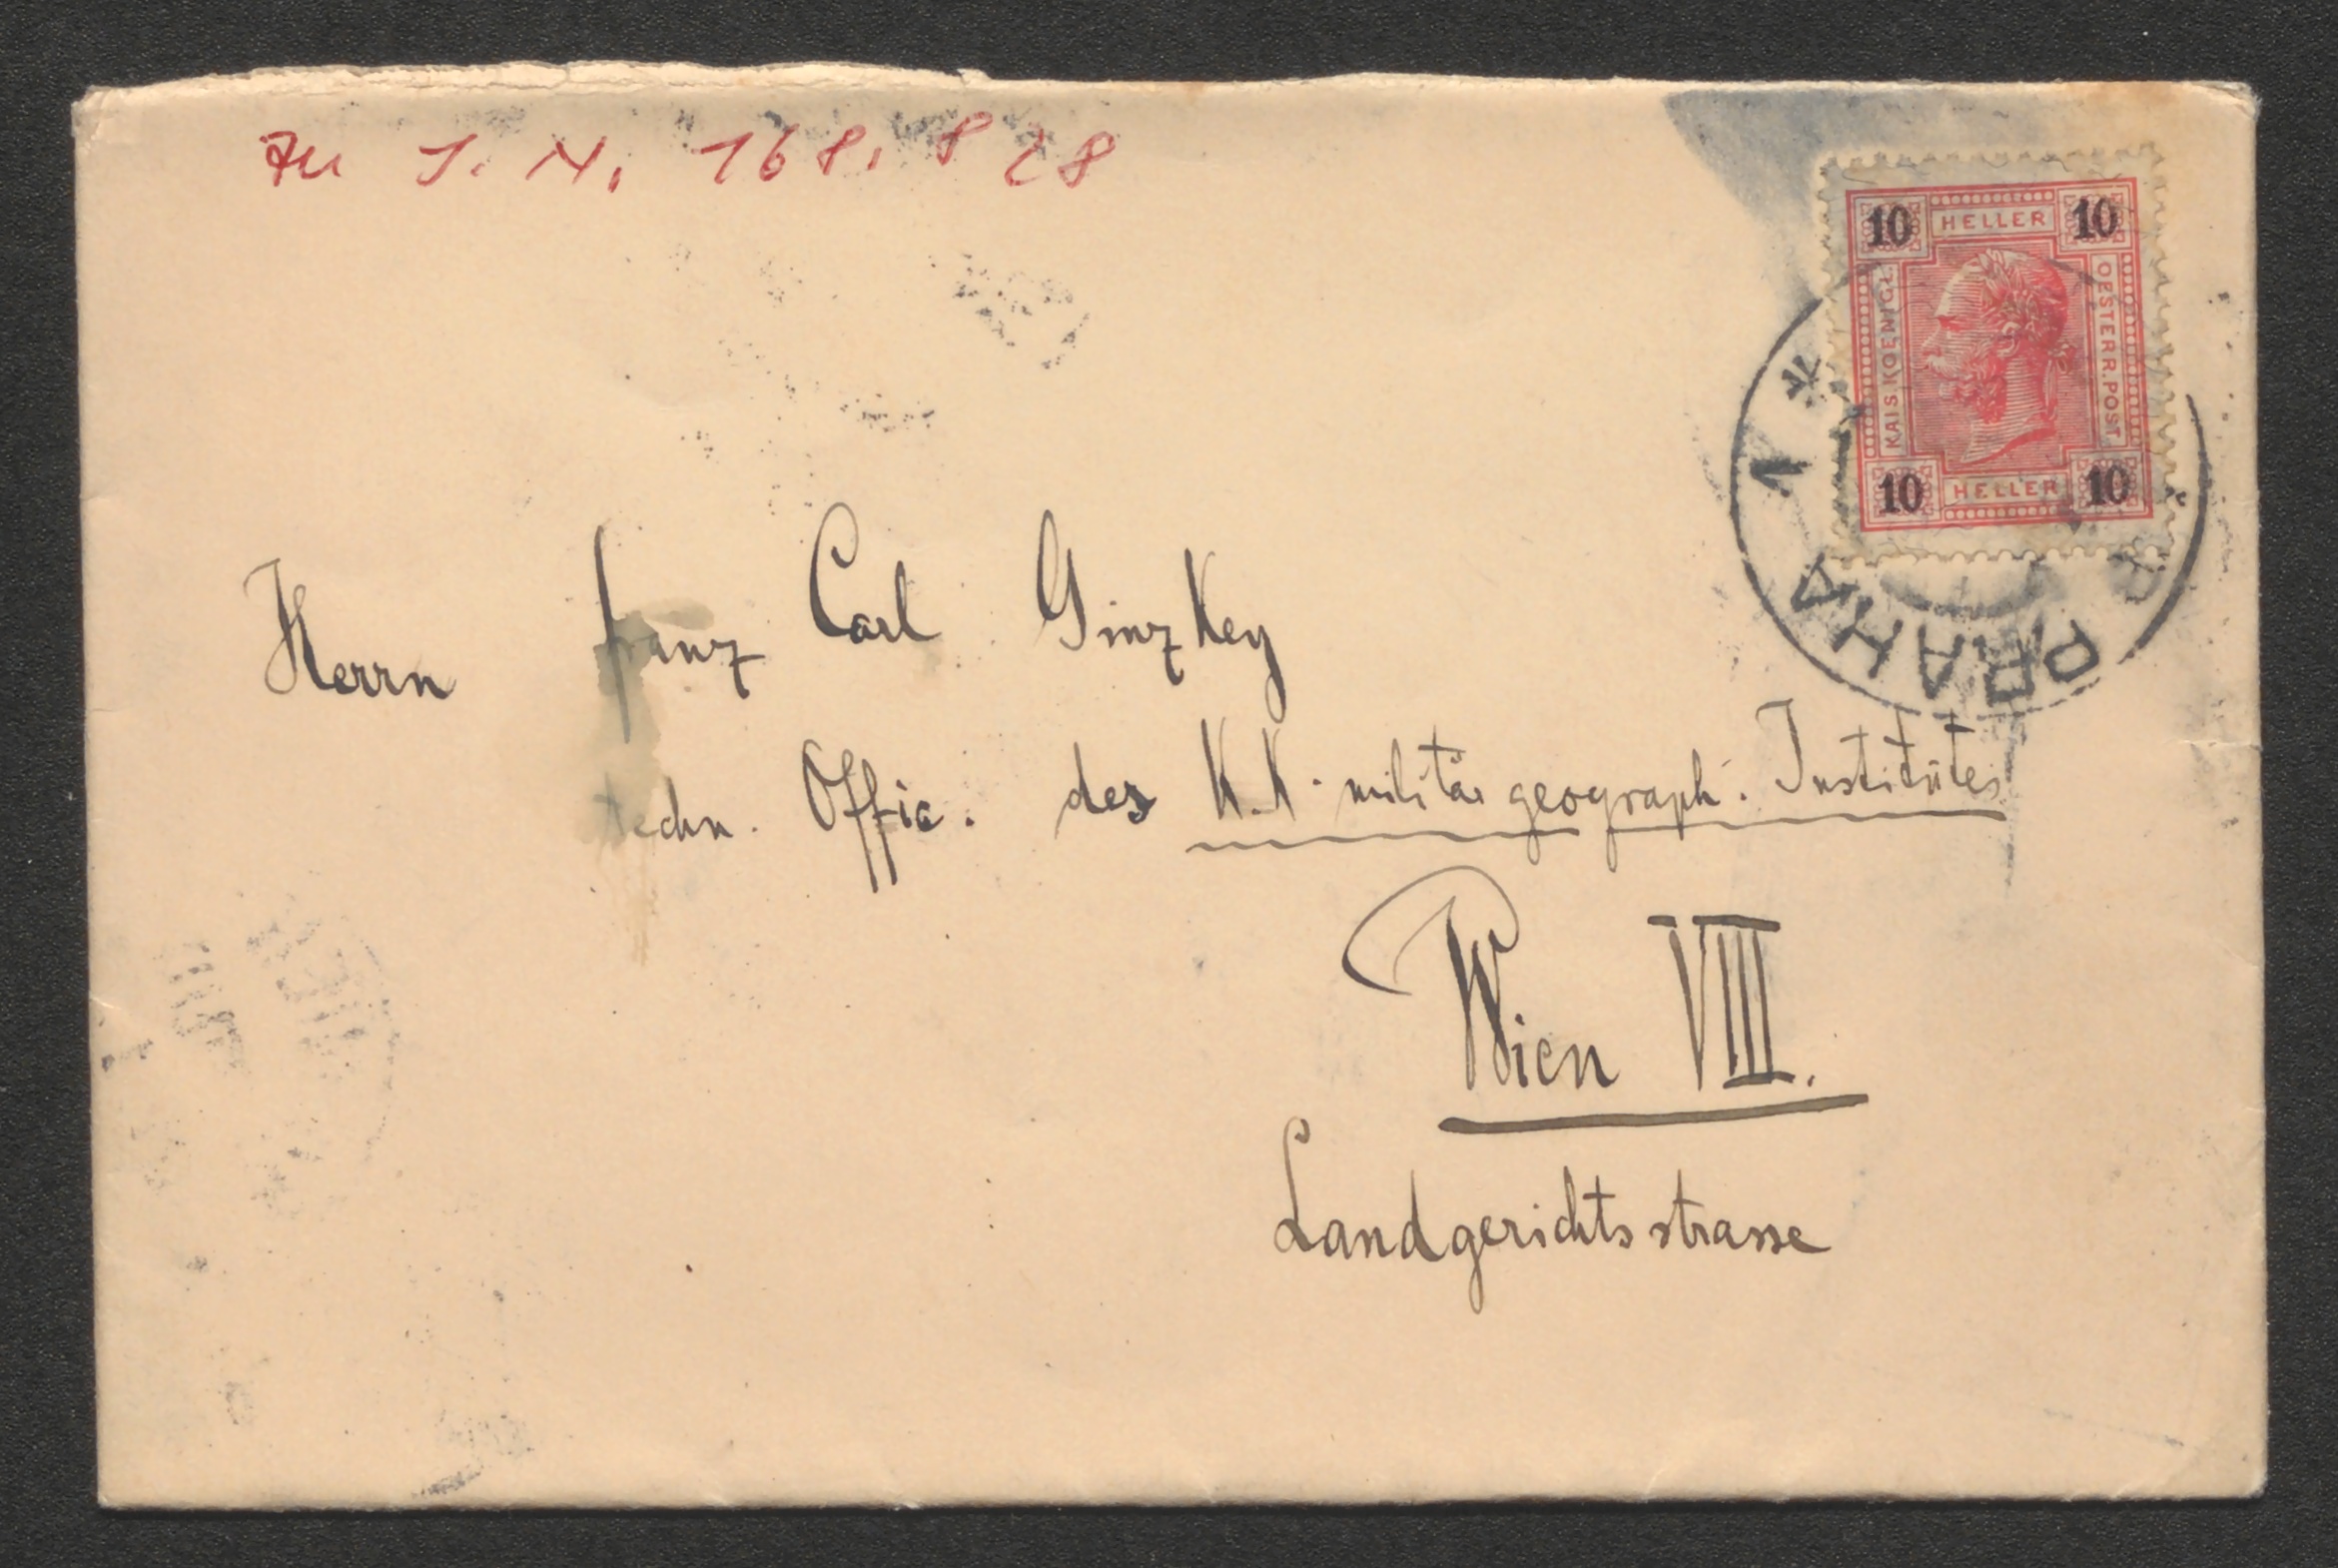 zu I. N. 168.828
10 HELLER 10
KAIS. KOENIGL.
OESTERR. POST
10 HELLER 10
PRAHA
Herrn Franz Carl Ginzkey
techn. Offic. des K. K. militärgeograph. Institutes
Wien VIII.
Landgerichtsstrasse